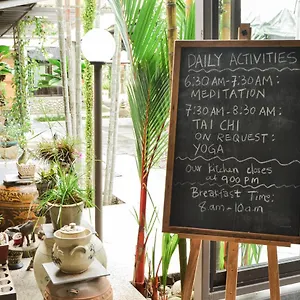 DAILY ACTIVITIES
6:30AM-7:30AM:
MEDITATION
7:30AM-8:30AM:
TAI CHI
ON REQUEST:
YOGA
OUR KITCHEN CLOSES
at 9:00 PM
Breakfast Time:
8am-10am